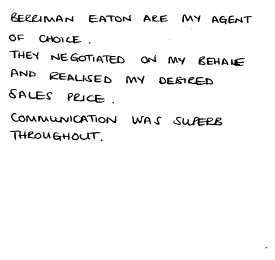 BERRIMAN EATON ARE MY AGENT
OF CHOICE.
THEY NEGOTIATED ON MY BEHALF
AND REALISED MY DESIRED
SALES PRICE.
COMMUNICATION WAS SUPERB
THROUGHOUT.